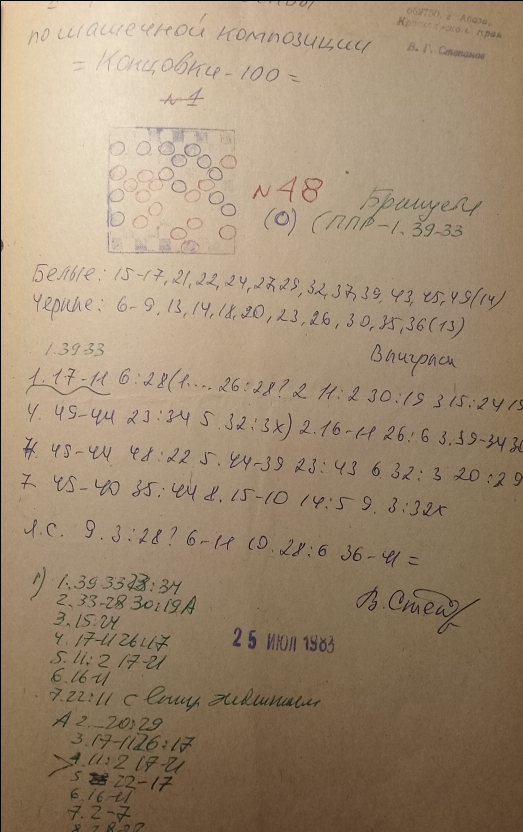 по шашечной композиции
= Концовки-100 =
№1
В. Г. Стовиков
№48
(О) (ППР-1.39-33
Белые: 15-17,21,22,24,27,29,32,37,39,43,45,49(14)
Черные: 6-9,13,14,18,20,23,26,30,35,36(13)
1.39-33
Выигрыш
1.17-11 6:28(1.... 26:28? 2 11:2 30:19 3 15:24 19
4. 49-44 23:34 5. 32:3х) 2.16-11 26:6 3.39-34 30
4. 49-44 48:22 5. 44-39 23:43 6.32:3 20:29
7. 45-40 35:44 8. 15-10 14:5 9. 3:32х
Л.С. 9. 3:28? 6-11 10. 28:6 36-41 =
1) 1.39 33 28:34
2.33-28 30:19А
3.15:24
4.17-11 26:17
5.11:2 17-21
6.16-11
7.22:11 с выигр
25 ИЮЛ 1983
А 2...20:29
3.17-11 26:17
4.11:2 17-21
5 22-17
6.16-11
7.2-7